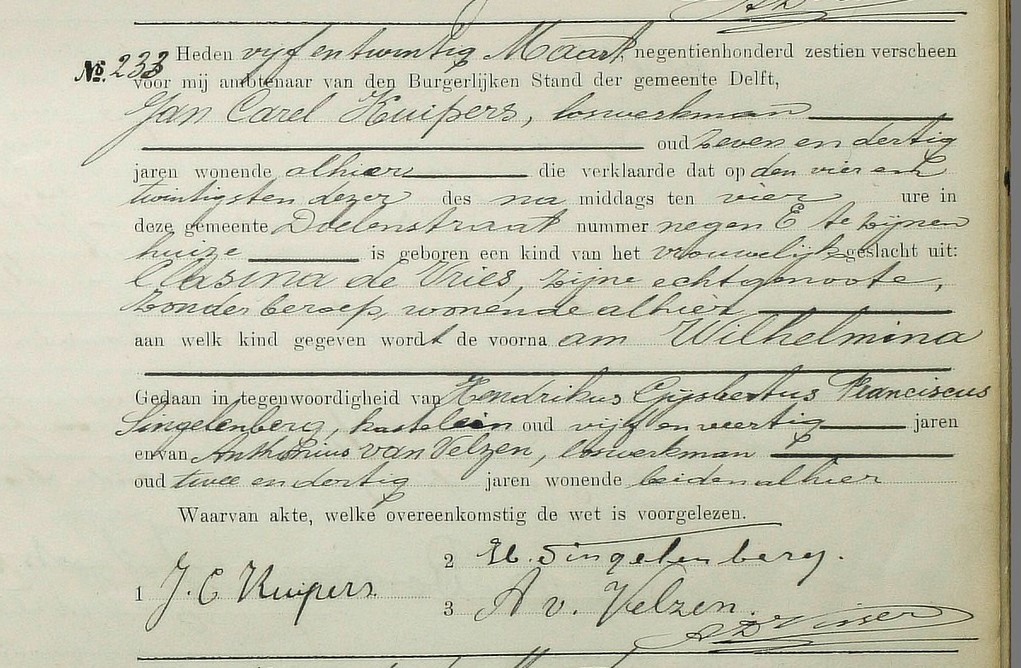 No. 233 Heden vijf en twintig Maart negentienhonderd zestien verscheen
voor mij ambtenaar van den Burgerlijken Stand der gemeente Delft,
Jan Carel Kuipers, loswerkman
oud zeven en dertig
jaren wonende alhier die verklaarde dat op den vier en
twintigsten dezer des na middags ten vier ure in
deze gemeente Doelenstraat nummer negen E te zijnen
huize is geboren een kind van het vrouwelijk geslacht uit:
Clasina de Vries, zijne echtgenoote,
zonder beroep, wonende alhier
aan welk kind gegeven wordt de voorna am Wilhelmina
Gedaan in tegenwoordigheid van Hendrikus Gijsbertus Franciscus
Singelenberg, kastelein oud vijf en veertig jaren
en van Anthonius van Velzen, loswerkman
oud twee en dertig jaren wonende beiden alhier
Waarvan akte, welke overeenkomstig de wet is voorgelezen.
2 H. Singelenberg.
1 J. C Kuipers.
3 A v. Velzen.
Visser